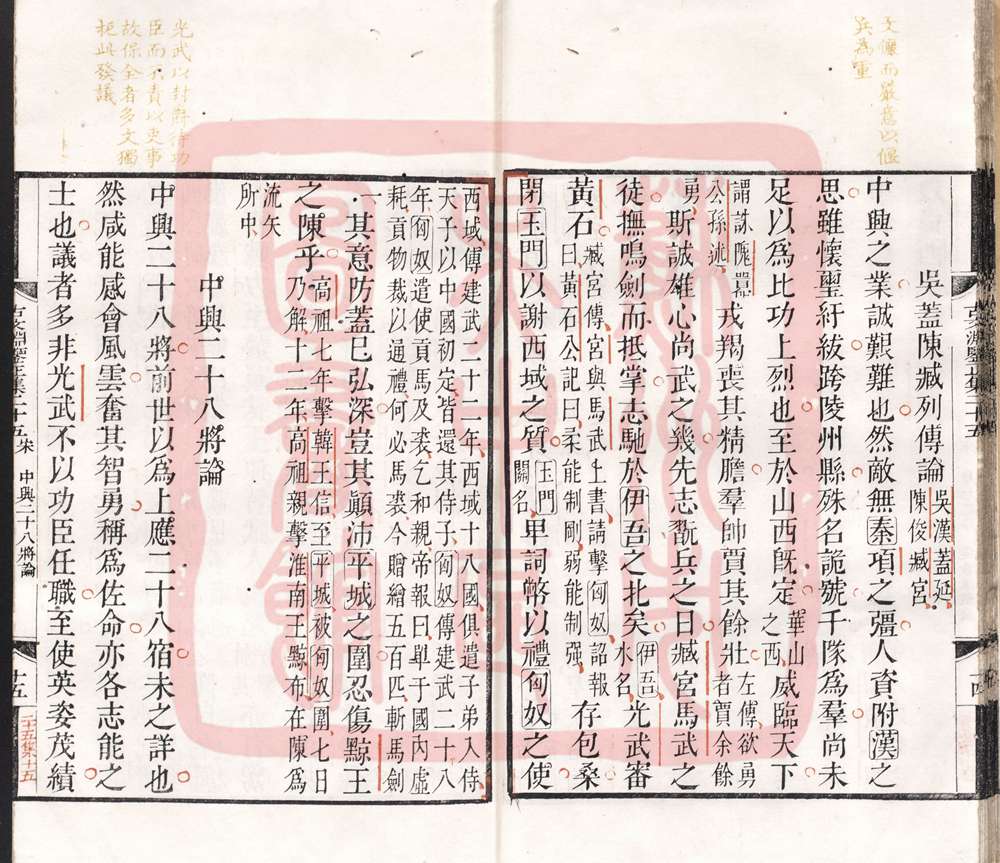 文儷而嚴意以偃
兵為重
吳蓋陳臧列傳論吳漢蓋延
陳俊臧宮
中興之業誠艱難也然敵無秦項之彊人資附漢之
思雖懷璽紆紱跨陵州縣殊名詭號千隊為羣尚未
足以為比功上烈也至於山西既定華山之西威臨天下
謂誅隗囂公孫述戎羯喪其精膽羣帥賈其餘壯左傳欲勇者賈余餘
勇斯誠雄心尚武之幾先志翫兵之日臧宮馬武之
徒撫鳴劍而抵掌志馳於伊吾之北矣伊吾水名光武審
黃石臧宮傳宮與馬武上書請擊匈奴詔報曰黃石公記曰柔能制剛弱能制强存包桑
閉玉門以謝西域之質玉門關名卑詞幣以禮匈奴之使
西域傳建武二十二年西域十八國俱遣子弟入侍
天子以中國初定皆還其侍子匈奴傳建武二十八
年匈奴遣使貢馬及裘乞和親帝報曰單于國內虛
耗貢物裁以通禮何必馬裘今贈繒五百匹斬馬劍
一其意防蓋已弘深豈其顛沛平城之圍忍傷黥王
之陳乎高祖七年擊韓王信至平城被匈奴圍七日乃解十二年高祖親擊淮南王黥布在陳為
流矢所中
中興二十八將論
中興二十八將前世以為上應二十八宿未之詳也
然咸能感會風雲奮其智勇稱為佐命亦各志能之
士也議者多非光武不以功臣任職至使英姿茂績
光武以封爵待功
臣而不責以吏事
故保全者多文獨
把此發議
古文淵鑒正集二十五
中興二十八將論
十五
二十五集十五